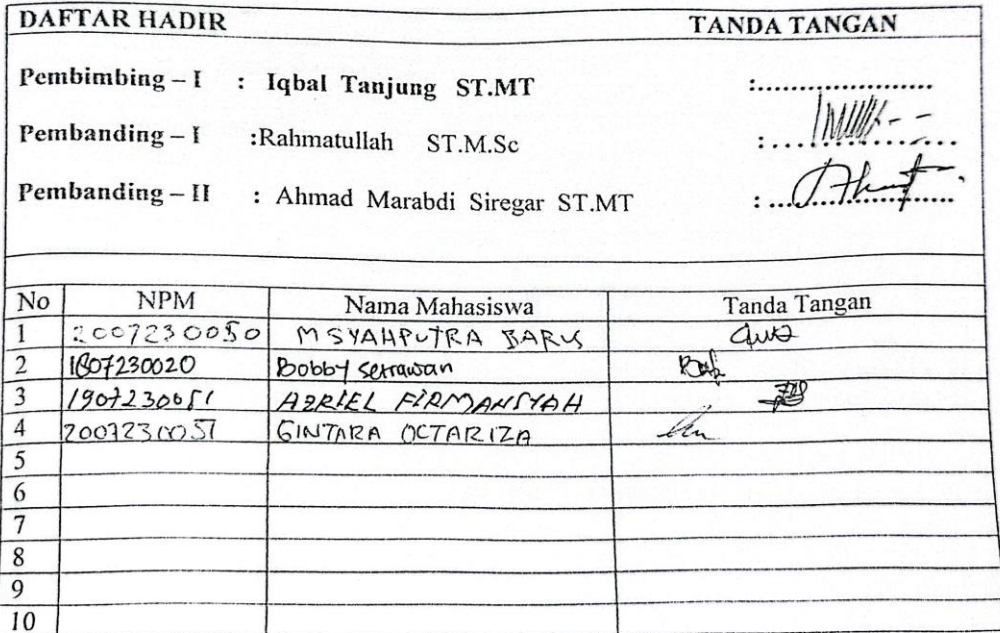 DAFTAR HADIR TANDA TANGAN
Pembimbing – I : Iqbal Tanjung ST.MT :......................
Pembanding – I :Rahmatullah ST.M.Sc :......................
Pembanding – II : Ahmad Marabdi Siregar ST.MT :......................
No NPM Nama Mahasiswa Tanda Tangan
1 2007230050 M SYAHPUTRA BARUS
2 1807230020 Bobby Setiawan
3 1907230051 AZRIEL FIRMANSYAH
4 2007230051 GINTARA OCTARIZA
5
6
7
8
9
10